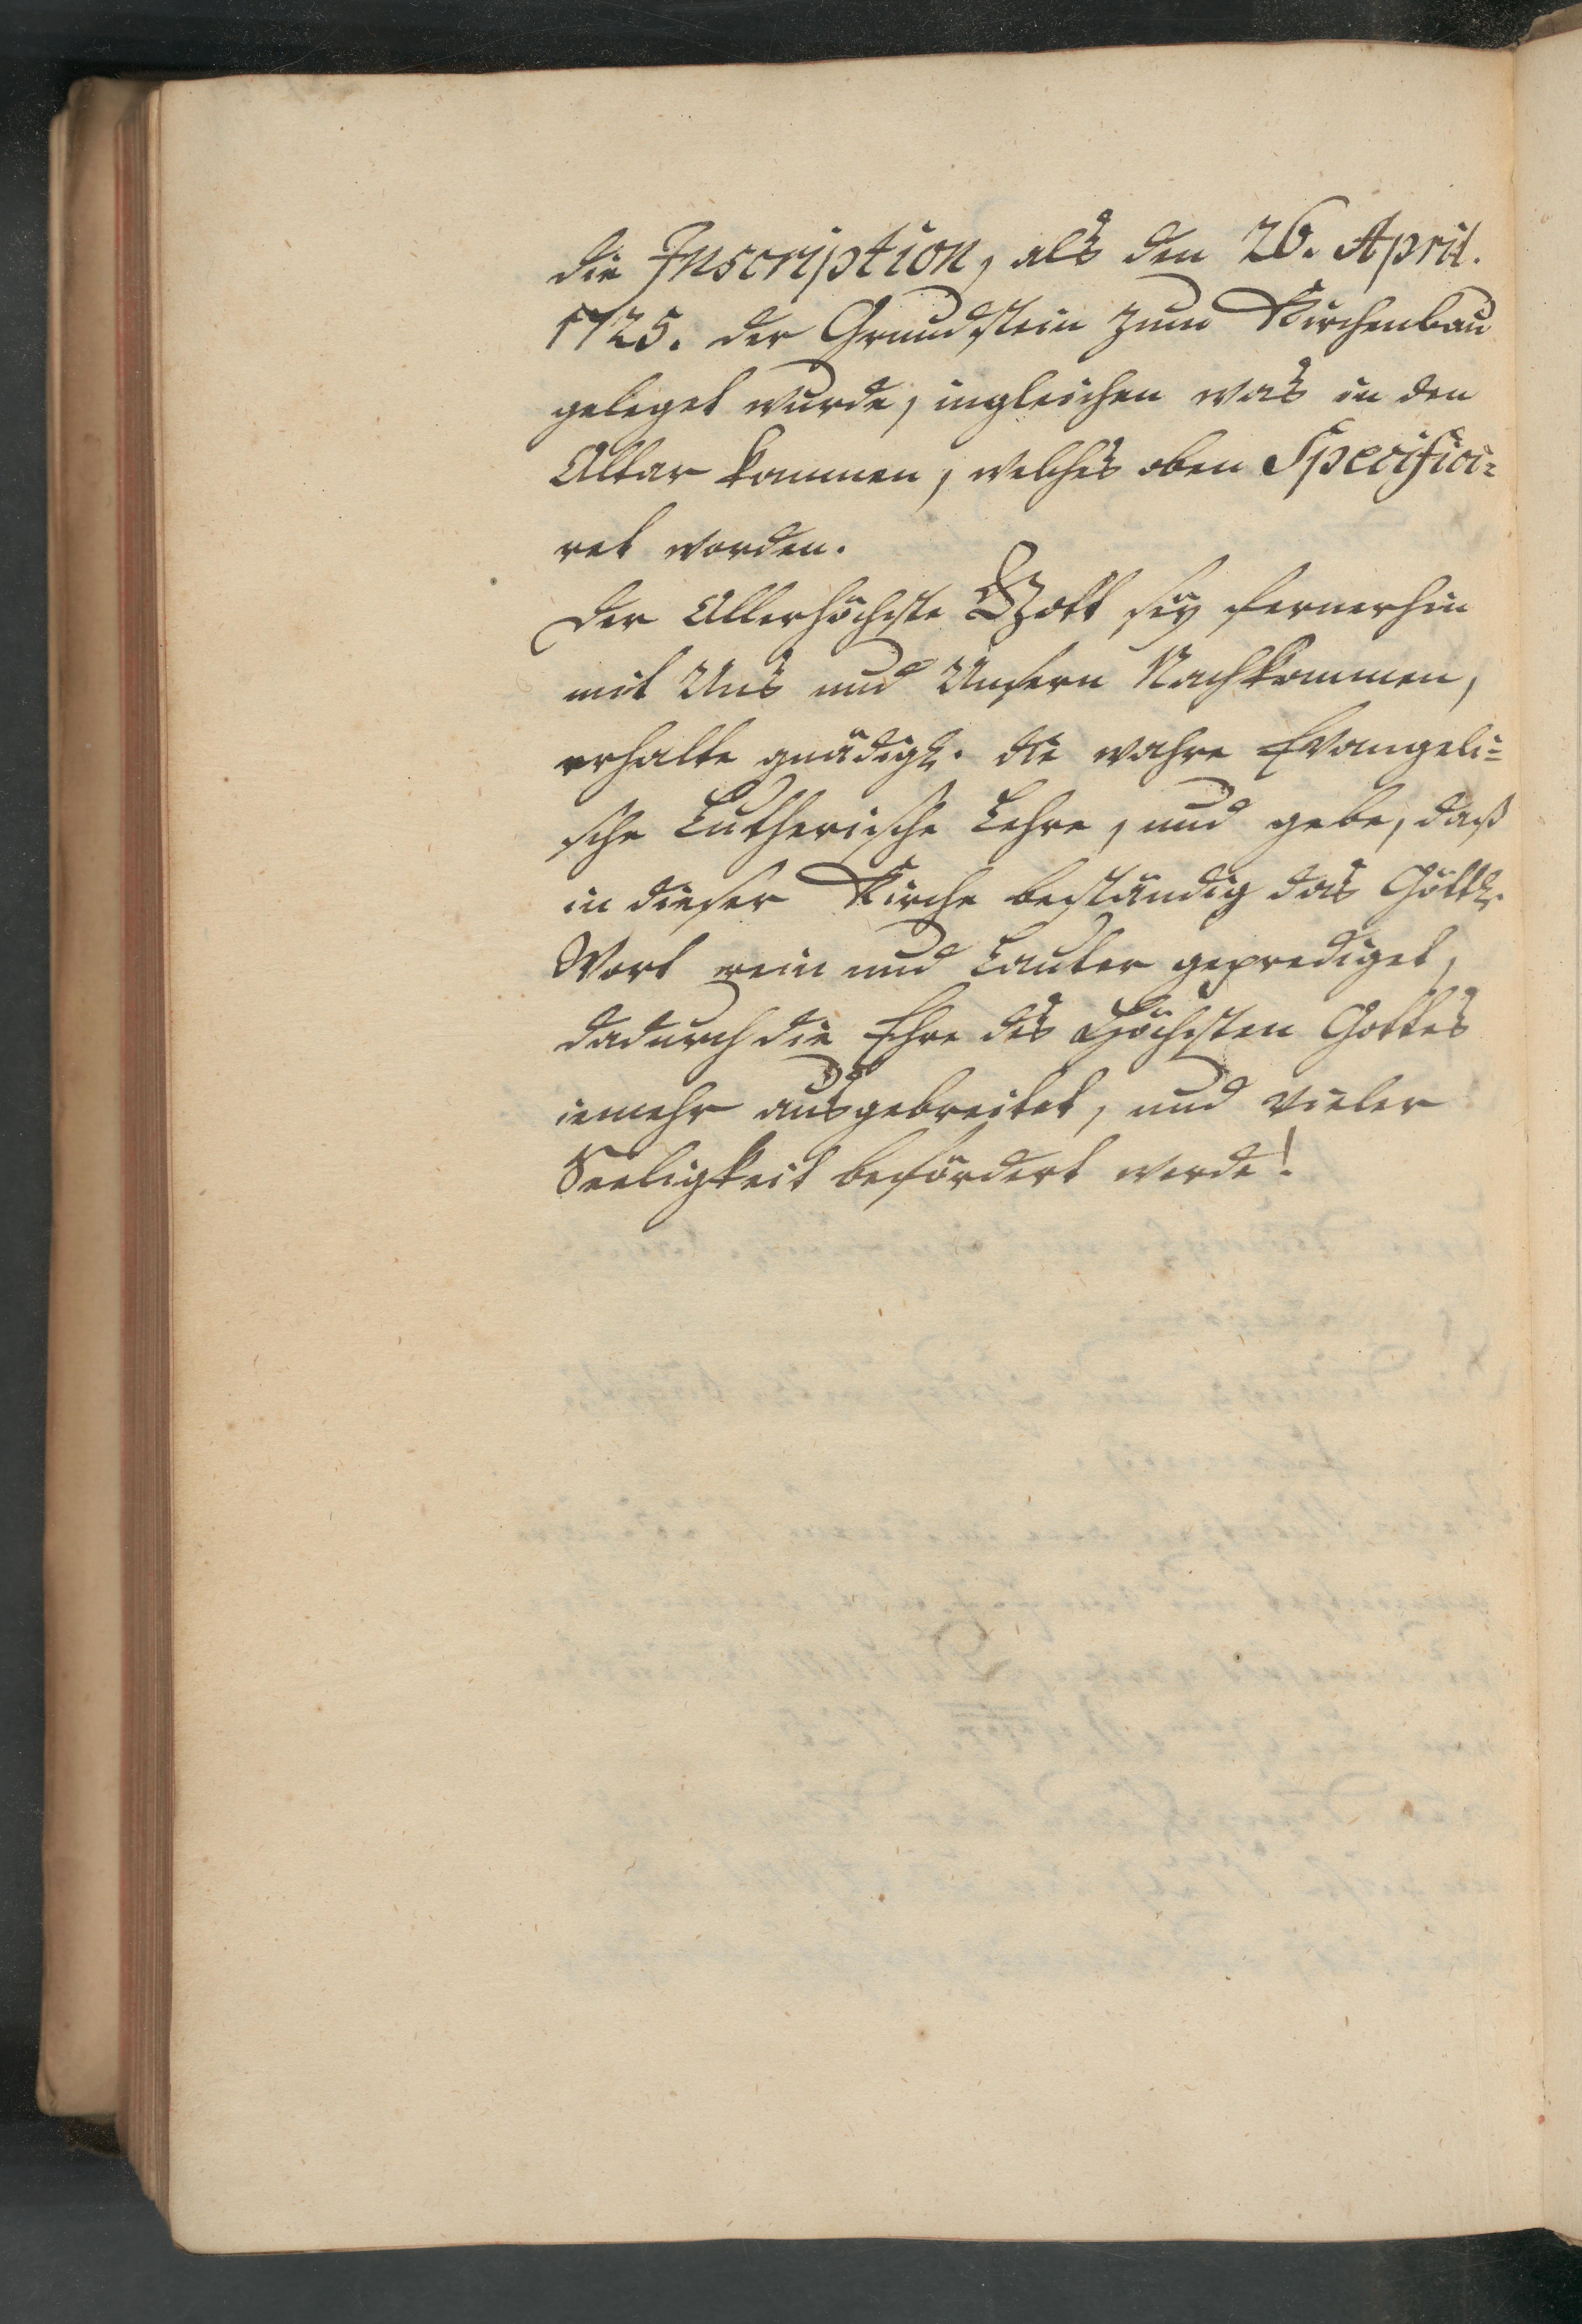 die Inscription, als den 26. April.
1725. der Grundstein zum Kirchenbau
geleget wurde, ingleichen was in den
Altar kommen, welches oben Specifici=
ret worden.
Der Allerhöchste Gott sey fernerhin
mit Uns und Unsern Nachkommen,
erhalte gnädigl. die wahre Evangeli=
sche Lutherische Lehre, und gebe, daß
in dieser Kirche beständig das Göttl.
Wort rein und Lauter geprediget,
dadurch die Ehre des Höchsten Gottes
iemehr ausgebreitet, und vieler
Seeligkeit befördert werde!